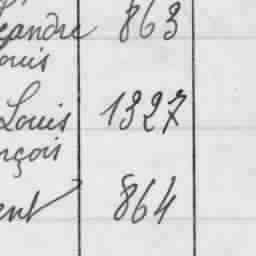 exandre 863
ouis
Louis 1327
nçois
ent 864